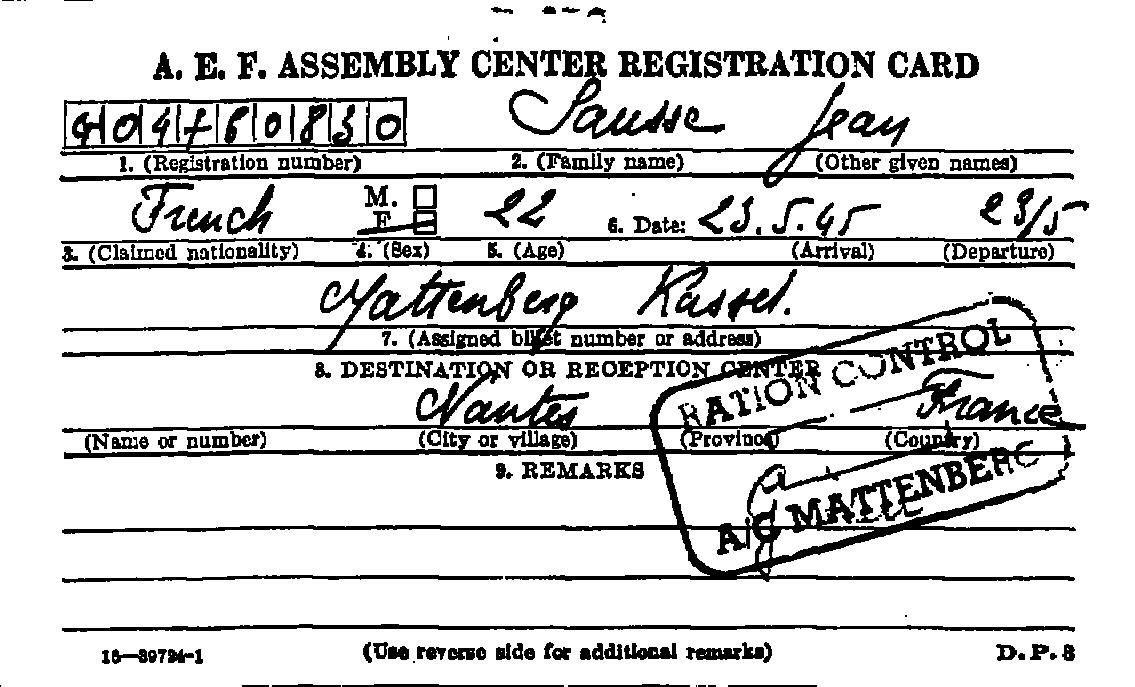 A. E. F. ASSEMBLY CENTER REGISTRATION CARD
Sausse Jean
1. (Registration number) 2. (Family name) (Other given names)
French M. F 22 6. Date: 23.5.45 23/5
3. (Claimed nationality) 4. (Sex) 5. (Age) (Arrival) (Departure)
Mattenberg Kassel.
7. (Assigned billet number or address)
8. DESTINATION OR RECEPTION CENTER
Nantes France
(Name or number) (City or village) (Province) (Country)
RATION CONTROL
A/C MATTENBERG
9. REMARKS
16—39724-1 (Use reverse side for additional remarks) D. P. 3